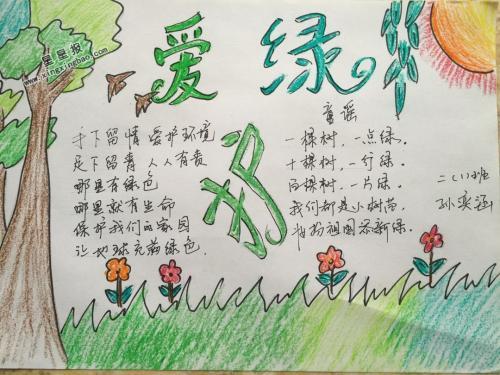 星星报
www.xingxingbao.com
爱绿护
手下留情 爱护环境
足下留青 人人有责
哪里有绿色
哪里就有生命
保护我们的家园
让地球充满绿色.
童谣
一棵树，一点绿.
十棵树，一行绿.
百棵树，一片绿.
我们都是小树苗.
祖国添新绿.
二(1)班
孙奕涵